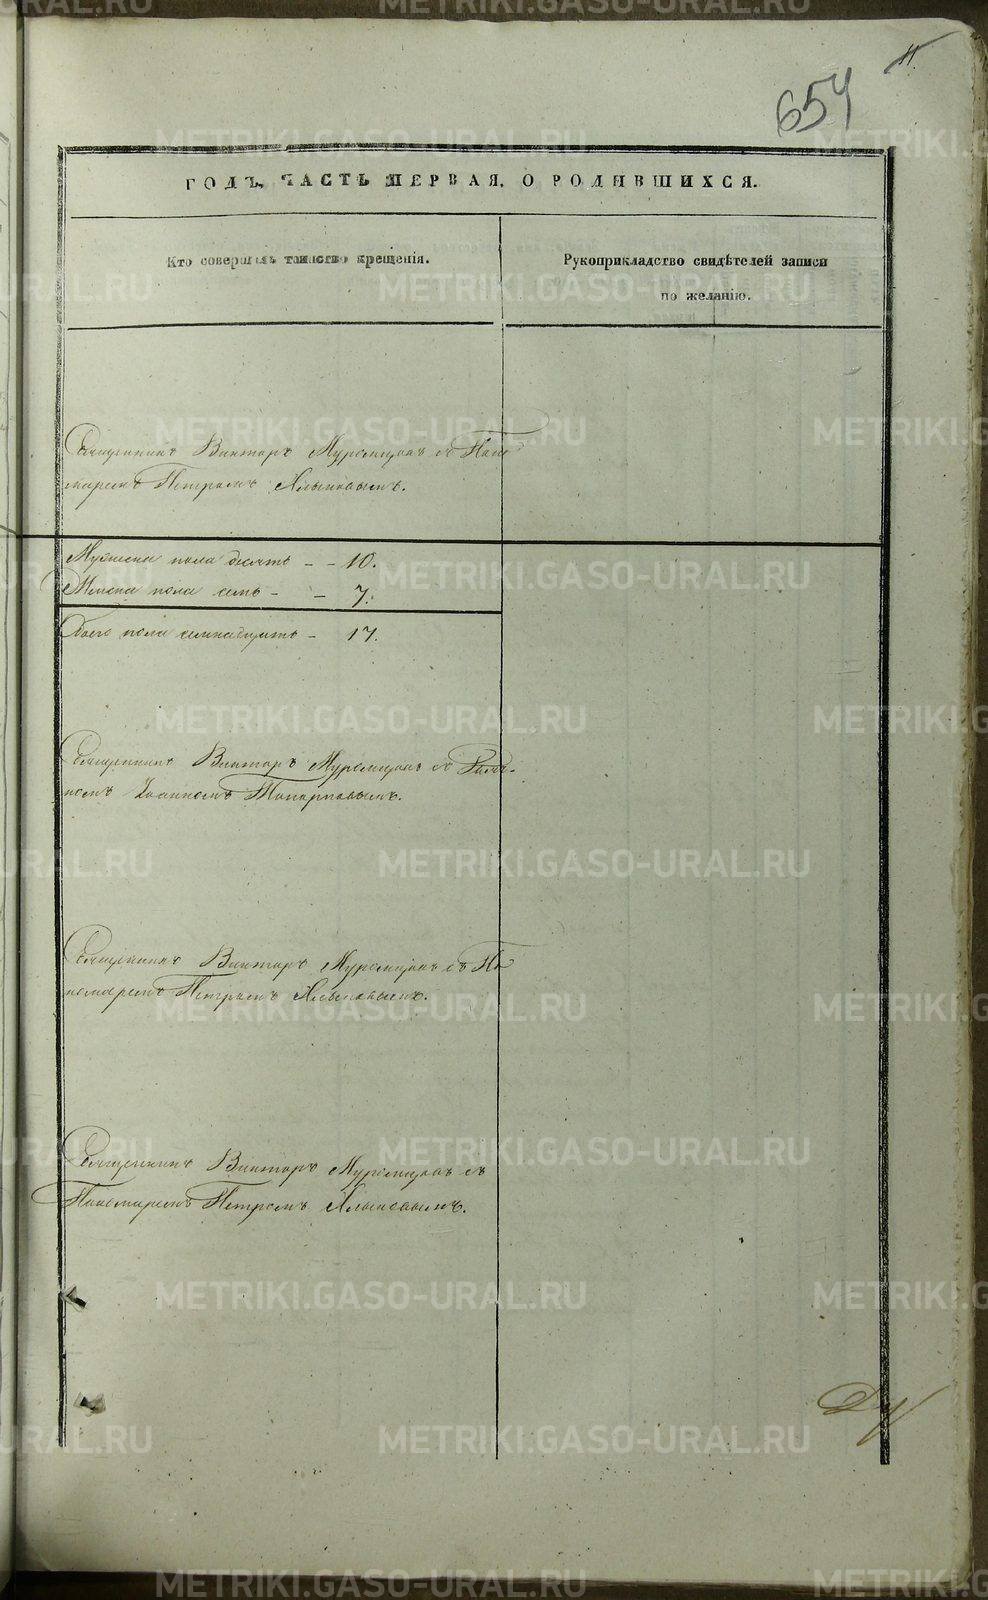 11.
654
ГОДЪ, ЧАСТЬ ПЕРВАЯ, О РОДИВШИХСЯ.
Кто совершалъ таинство крещенія.
Рукоприкладство свидѣтелей записи
по желанію.
Священникъ Викторъ Муромцовъ съ Поно-
маремъ Петромъ
Мужеска пола десять - - 10.
Женска пола семь - - 7.
Обоего пола семнадцать - 17.
Священникъ Викторъ Муромцовъ съ
Іоанномъ Топорковымъ.
Священникъ Викторъ Муромцовъ съ По-
номаремъ Петромъ
Священникъ Викторъ Муромцовъ съ
Пономаремъ Петромъ
METRIKI.GASO-URAL.RU